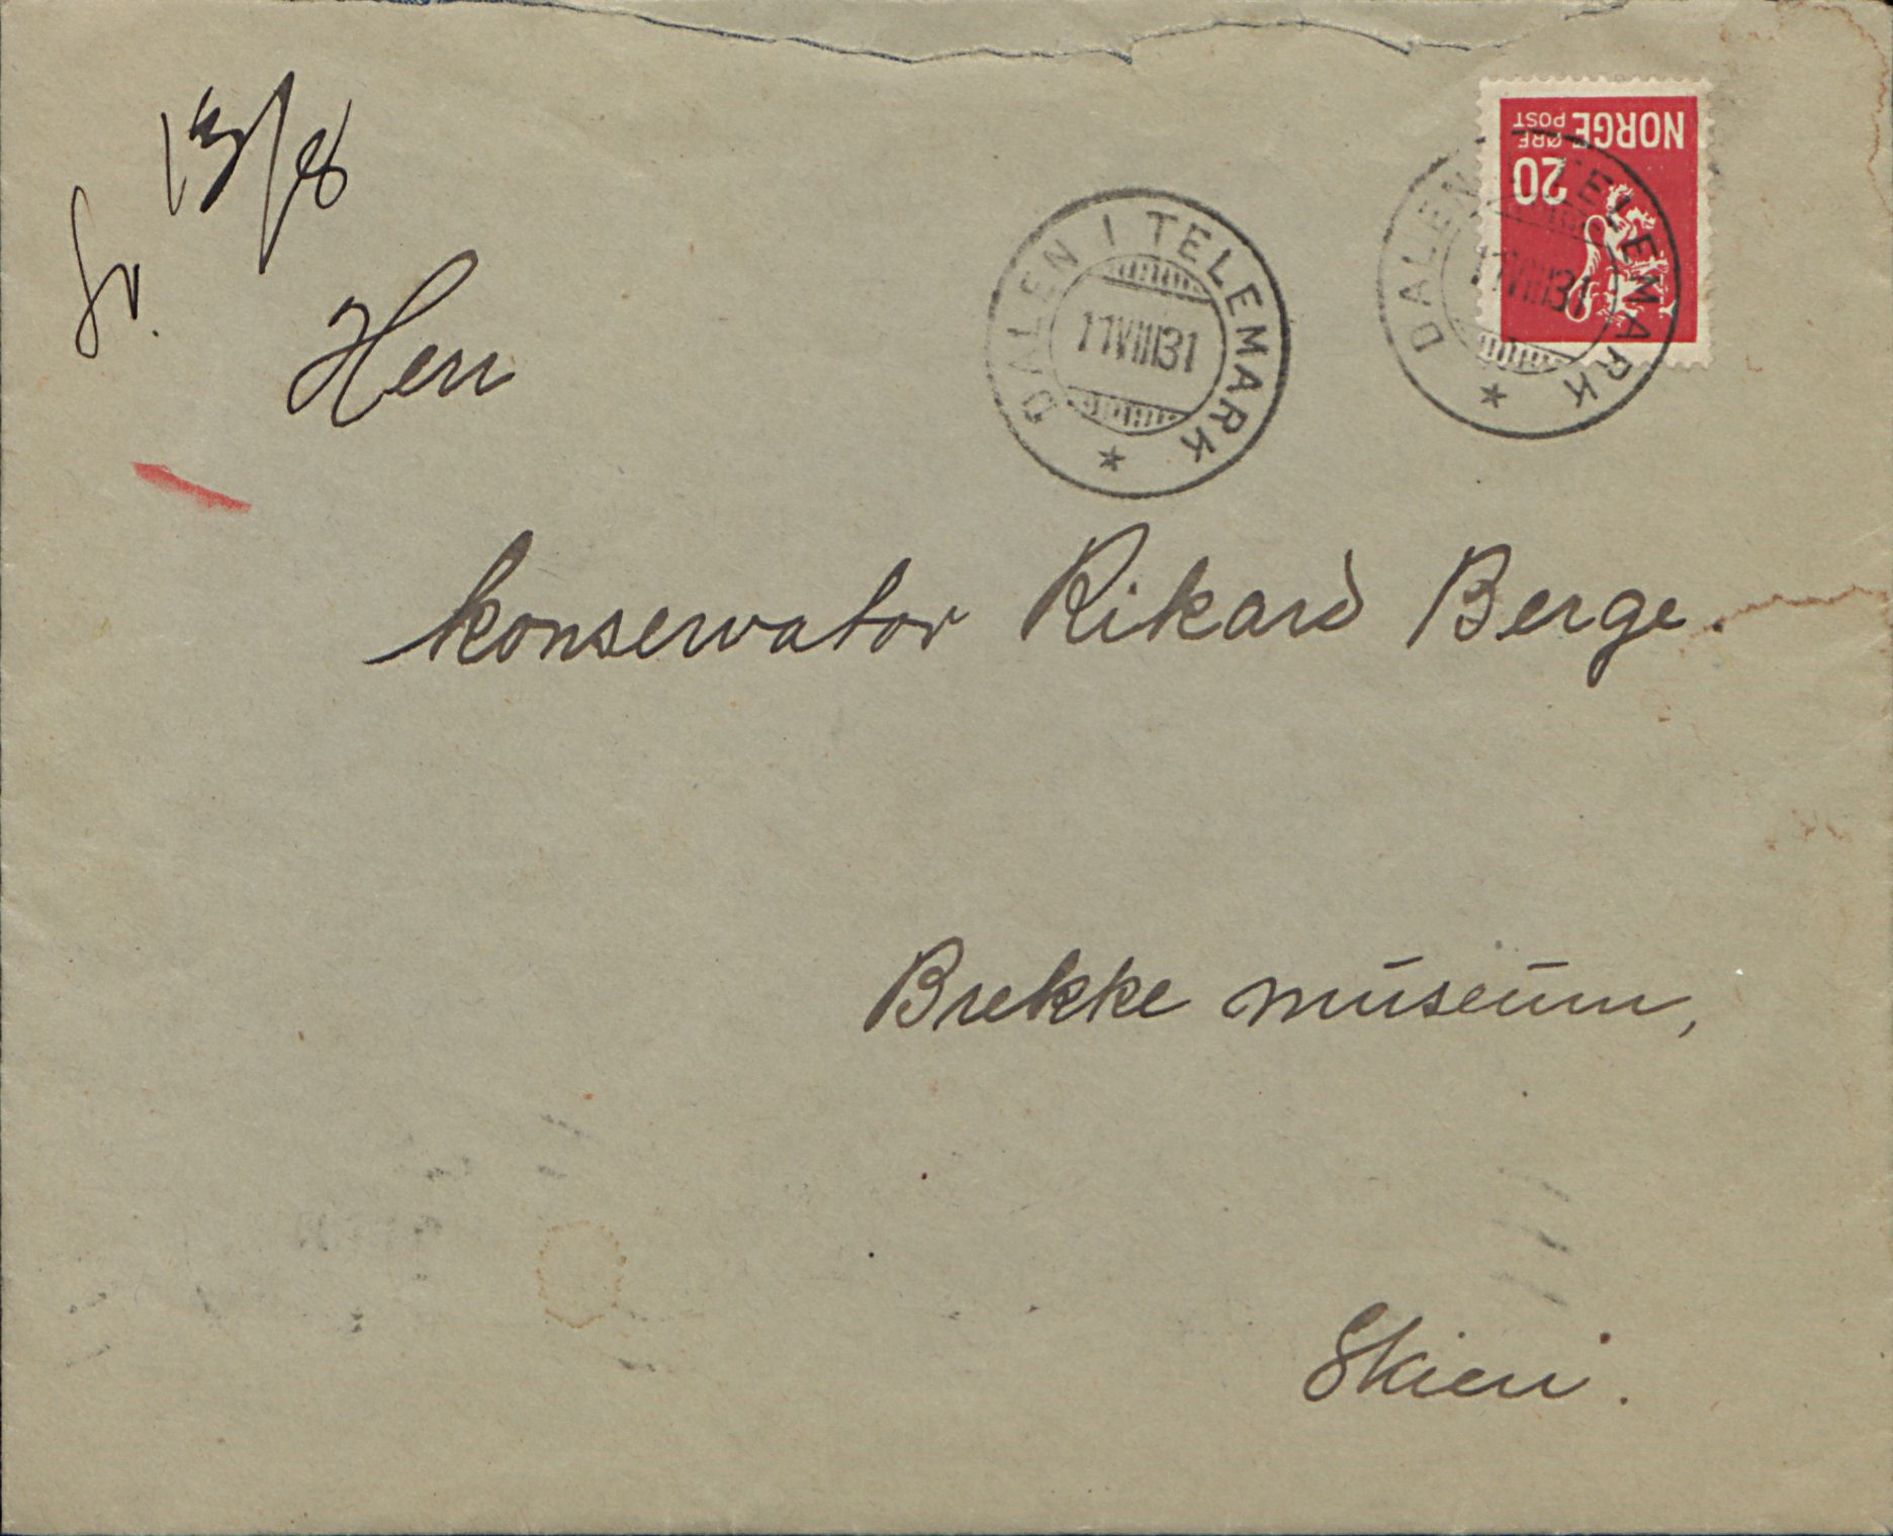 NORGE
POST
20 ØRE
Sv. 13/8
DALEN I TELEMARK
11 VIII 31
DALEN I TELEMARK
11 VIII 31
Herr
konservator Rikard Berge.
Brekke museum,
Skien.